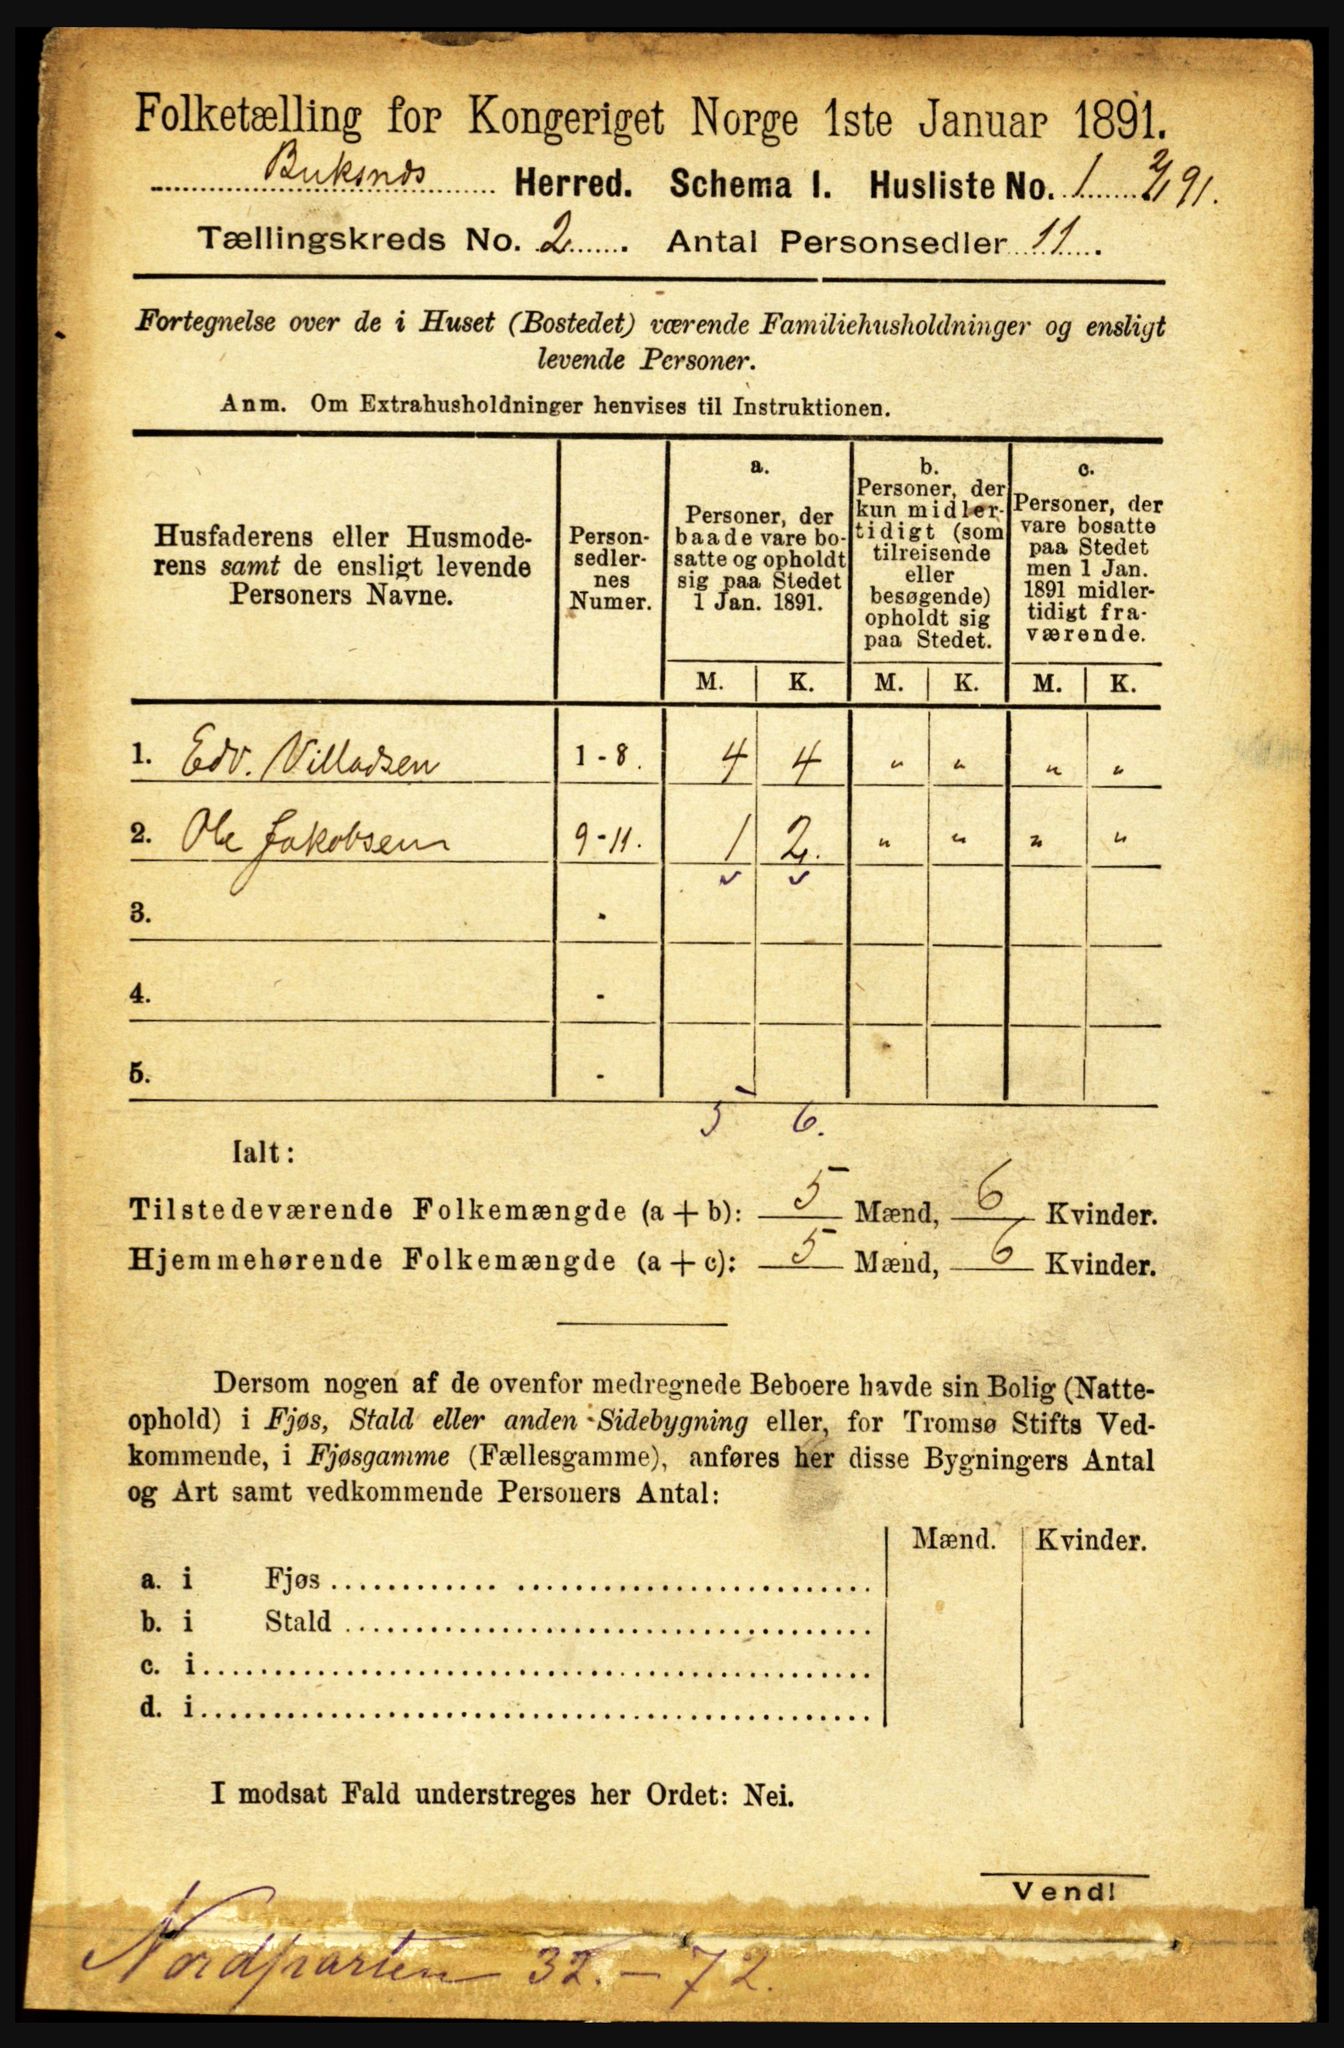 Folketælling for Kongeriget Norge 1ste Januar 1891.
Buksnæs Herred. Schema I. Husliste No. 1 2/1 91.
Tællingskreds No. 2. Antal Personsedler 11.
Fortegnelse over de i Huset (Bostedet) værende Familiehusholdninger og ensligt
levende Personer.
Anm. Om Extrahusholdninger henvises til Instruktionen.
Husfaderens eller Husmode-
rens samt de ensligt levende
Personers Navne.
Person-
sedler-
nes
Numer.
a.
Personer, der
baade vare bo-
satte og opholdt
sig paa Stedet
1 Jan. 1891.
b.
Personer, der
kun midler-
tidigt (som
tilreisende
eller
besøgende)
opholdt sig
paa Stedet.
c.
Personer, der
vare bosatte
paa Stedet
men 1 Jan.
1891 midler-
tidigt fra-
værende.
M. K. M. K. M. K.
1. Edv. Villadsen 1 - 8. 4 4 " " " "
2. Ole Jakobsen 9 - 11. 1 2. " " " "
3. -
4. -
5. -
5 6.
Ialt:
Tilstedeværende Folkemængde (a + b): 5 Mænd, 6 Kvinder.
Hjemmehørende Folkemængde (a + c): 5 Mænd, 6 Kvinder.
Dersom nogen af de ovenfor medregnede Beboere havde sin Bolig (Natte-
ophold) i Fjøs, Stald eller anden Sidebygning eller, for Tromsø Stifts Ved-
kommende, i Fjøsgamme (Fællesgamme), anføres her disse Bygningers Antal
og Art samt vedkommende Personers Antal:
Mænd. Kvinder.
a. i Fjøs
b. i Stald
c. i
d. i
I modsat Fald understreges her Ordet: Nei.
Vend!
Nordparten 32. - 72.